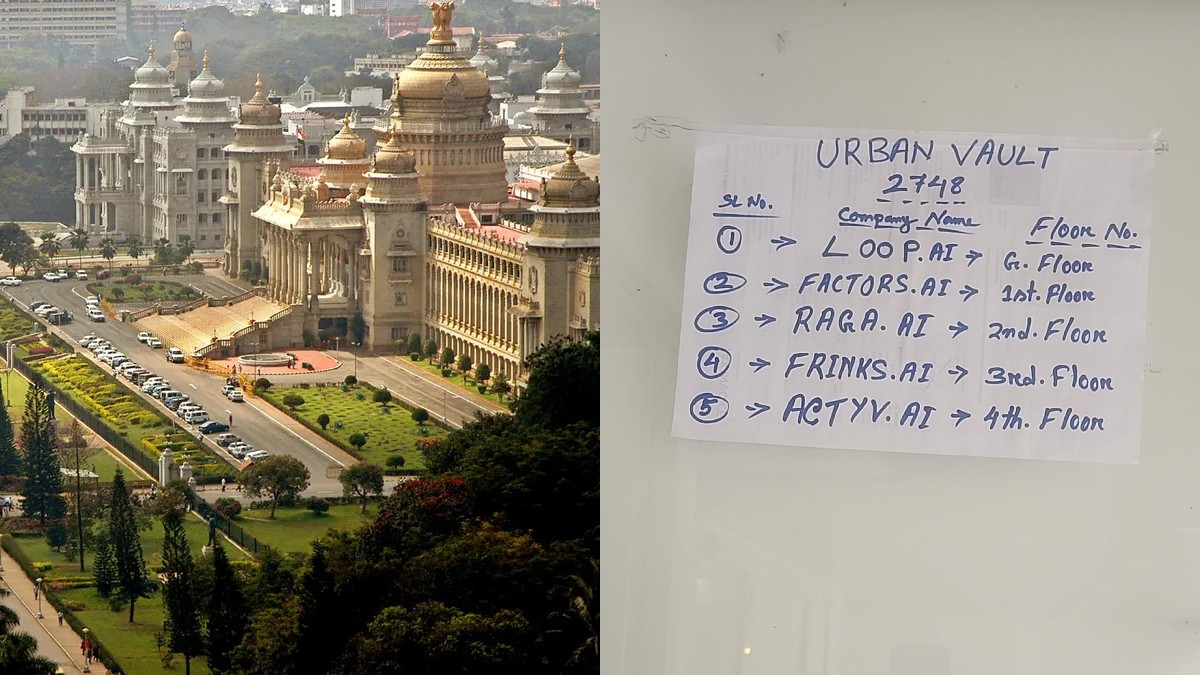 URBAN VAULT
2748
SL No. Company Name Floor No.
1 → LOOP.AI → G. Floor
2 → FACTORS.AI → 1st. Floor
3 → RAGA.AI → 2nd. Floor
4 → FRINKS.AI → 3rd. Floor
5 → ACTYV.AI → 4th. Floor